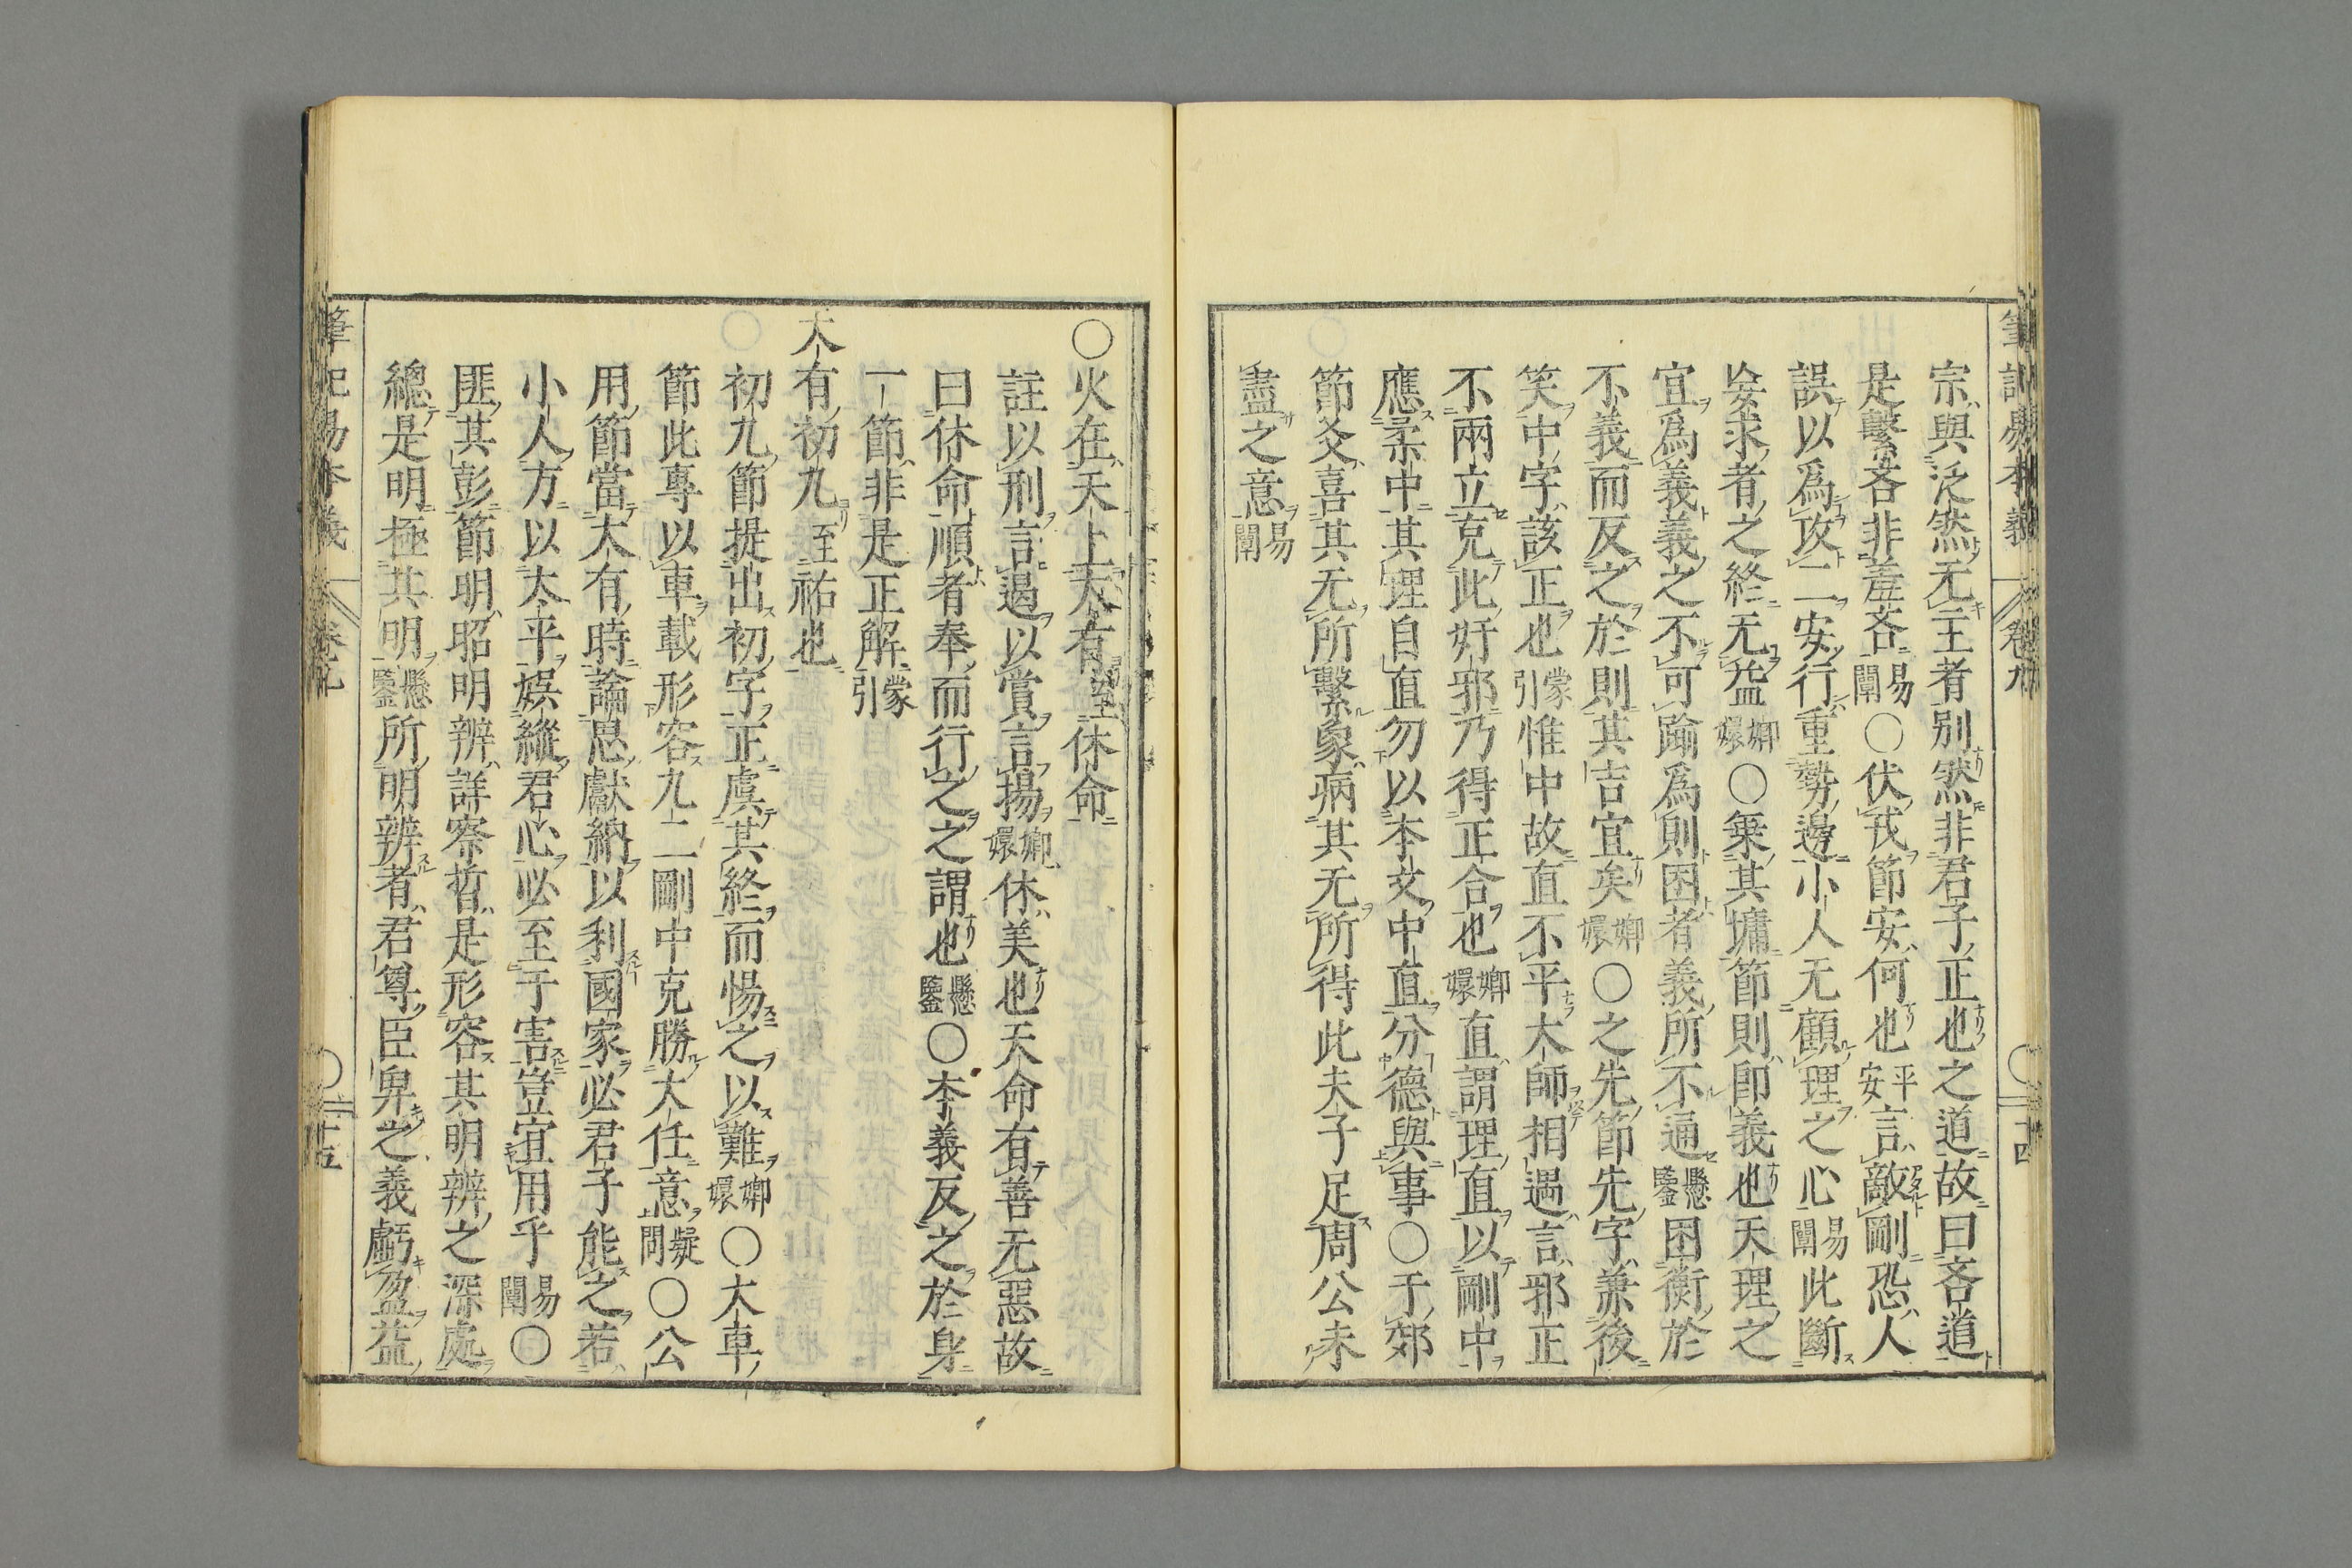 宗與泛然无主者別然非君子正也之道故曰吝道
是繫吝非羞吝易闡〇伏戎節安何也平安言敵剛恐人
誤以爲攻二安行重勢邊小人无顧理之心易闡此斷
妄求者之終无益嫏嬛〇乗其墉節則即義也天理之
宜爲義義之不可踰爲則困者義所不通懸鑒困衡於
不義而反之於則其吉宜矣嫏嬛〇之先節先字兼後
笑中字該正也蒙引惟中故直不平大師相遇言邪正
不兩立克此奸邪乃得正合也嫏嬛直謂理直以剛中
應柔中其理自直勿以本文中直分德與事〇于郊
節爻喜其无所繫象病其无所得此夫子足周公未
盡之意易闡
筆記易本義 卷九 〇二十四
〇火在天上大有至休命
註以刑言遏以賞言揚嫏嬛休美也天命有善无惡故
曰休命順者奉而行之之謂也懸鑒〇本義反之於身
一節非是正解蒙引
大有初九至祐也
初九節提出初字正虞其終而惕之以難嫏嬛〇大車
節此專以車載形容九二剛中克勝大任意疑問〇公
用節當大有時論思獻納以利國家必君子能之若
小人方以太平娯縱君心必至于害豈宜用乎易闡〇
匪其彭節明昭明辨詳察晢是形容其明辨之深處
總是明極其明懸鑒所明辨者君尊臣卑之義虧盈益
筆記易本義 卷九 〇二十五